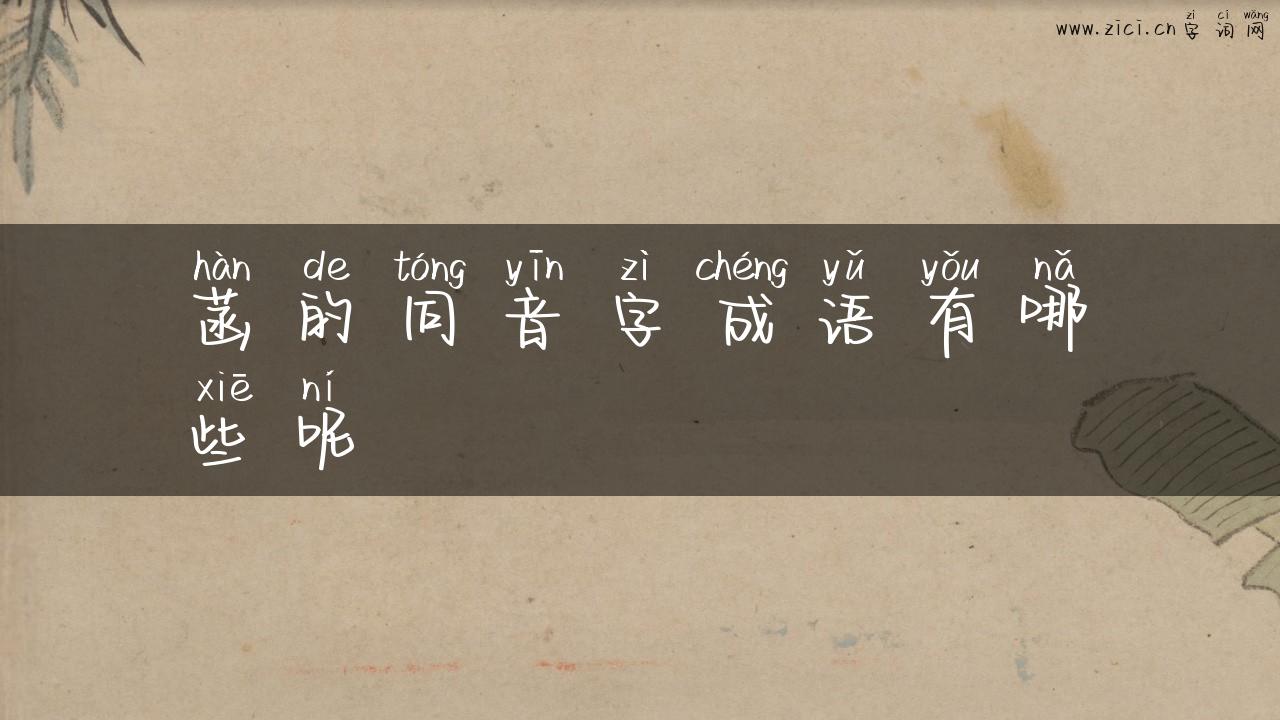 zì cí wǎng
www.zici.cn 字词网
hàn de tóng yīn zì chéng yǔ yǒu nǎ
菡的同音字成语有哪
xiē ní
些呢